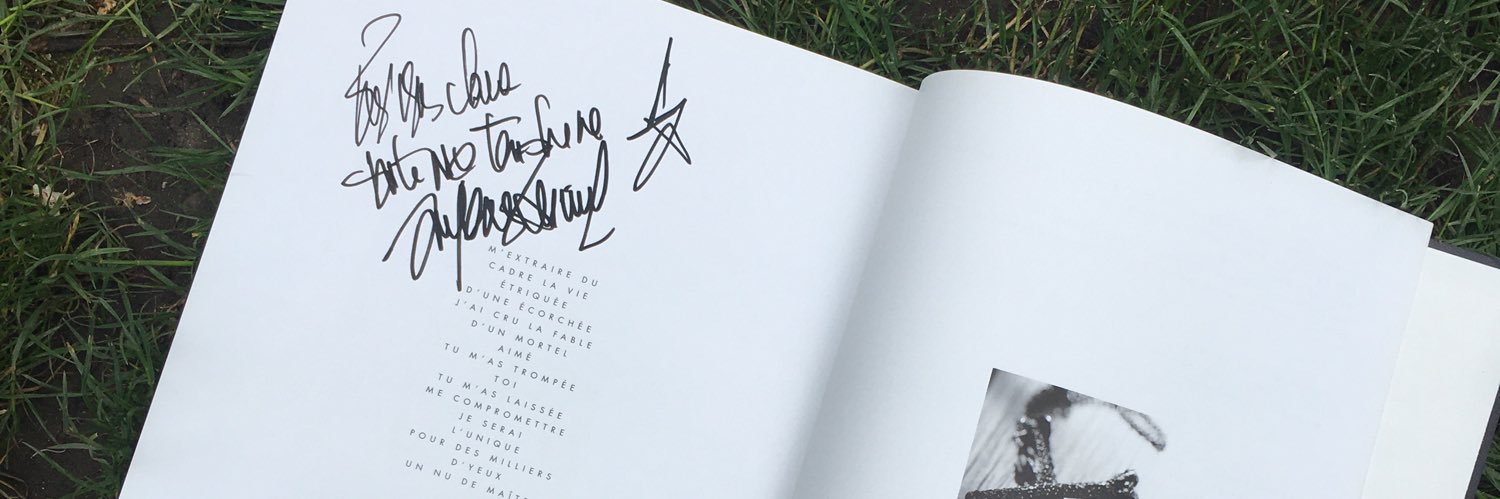 Pour
toute ma tendresse
M'EXTRAIRE DU
CADRE LA VIE
ÉTRIQUÉE
D'UNE ÉCORCHÉE
J'AI CRU LA FABLE
D'UN MORTEL
AIMÉ
TU M'AS TROMPÉE
TOI
TU M'AS LAISSÉE
ME COMPROMETTRE
JE SERAI
L'UNIQUE
POUR DES MILLIERS
D'YEUX
UN NU DE MAÎT